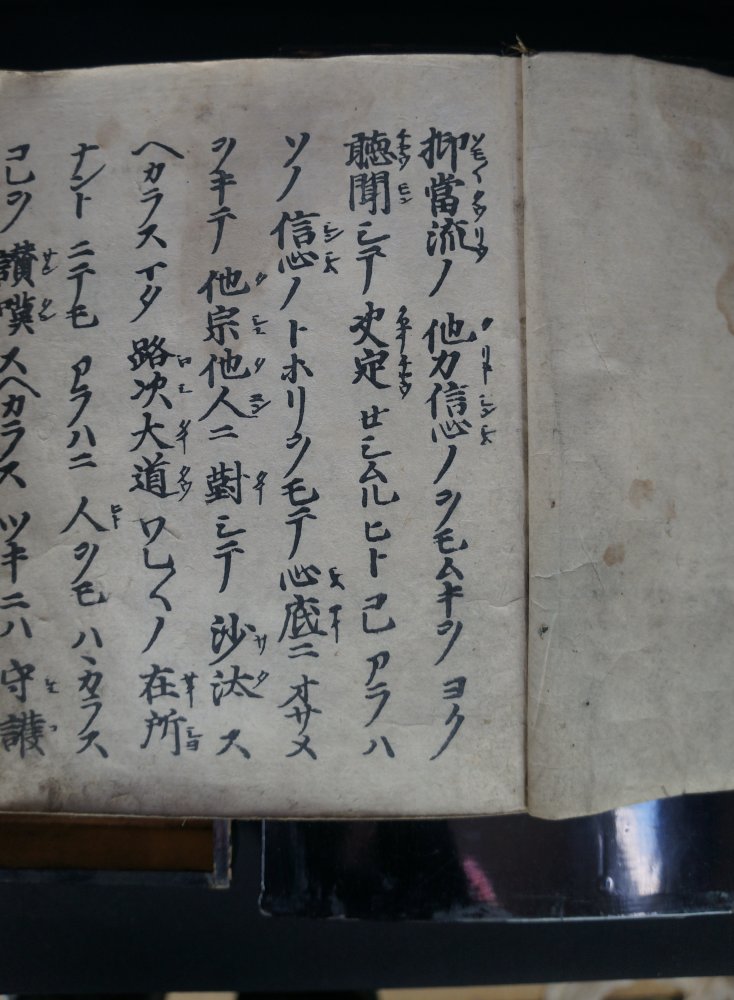 抑當流ノ他力信心ノヲモムキヲヨク
聴聞シテ决定セシムルヒトコレアラハ
ソノ信心ノトホリヲモテ心底ニオサメ
ヲキテ他宗他人ニ對シテ沙汰ス
ヘカラスマタ路次大道ワレ〳〵ノ在所
ナントニテモアラハニ人ヲモハヽカラス
コレヲ讃嘆スヘカラスツキニハ守護